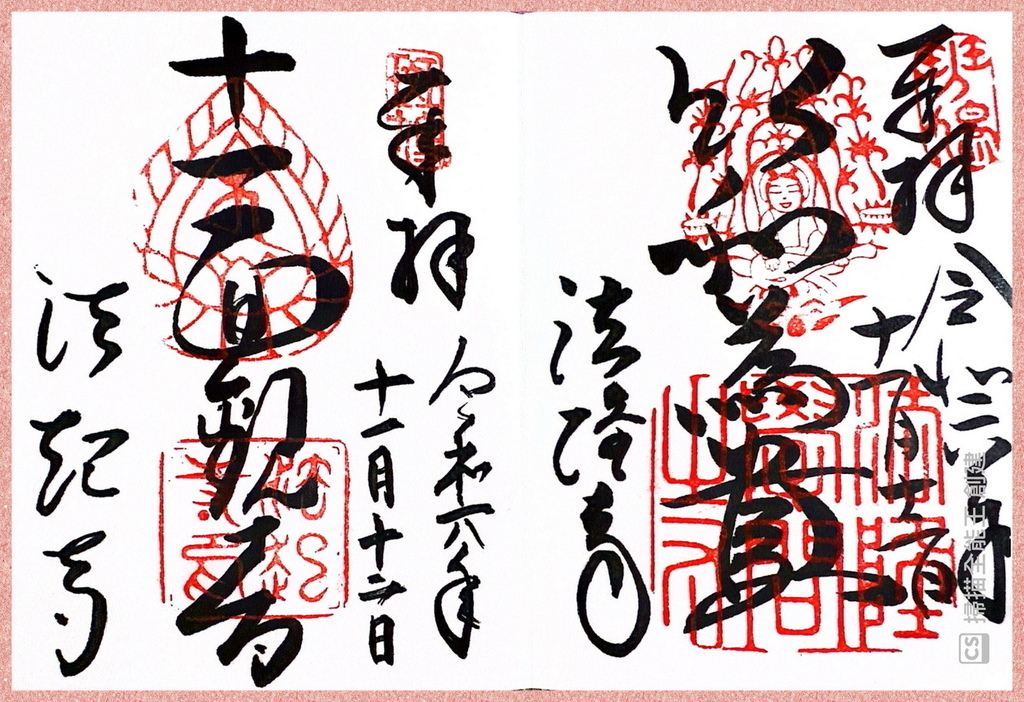 斑鳩
奉拝
令和六年
十一月十二日
以和為貴
法隆寺
奉拝
令和六年
十一月十二日
十一面観音
法起寺
CS 掃描全能王 創建